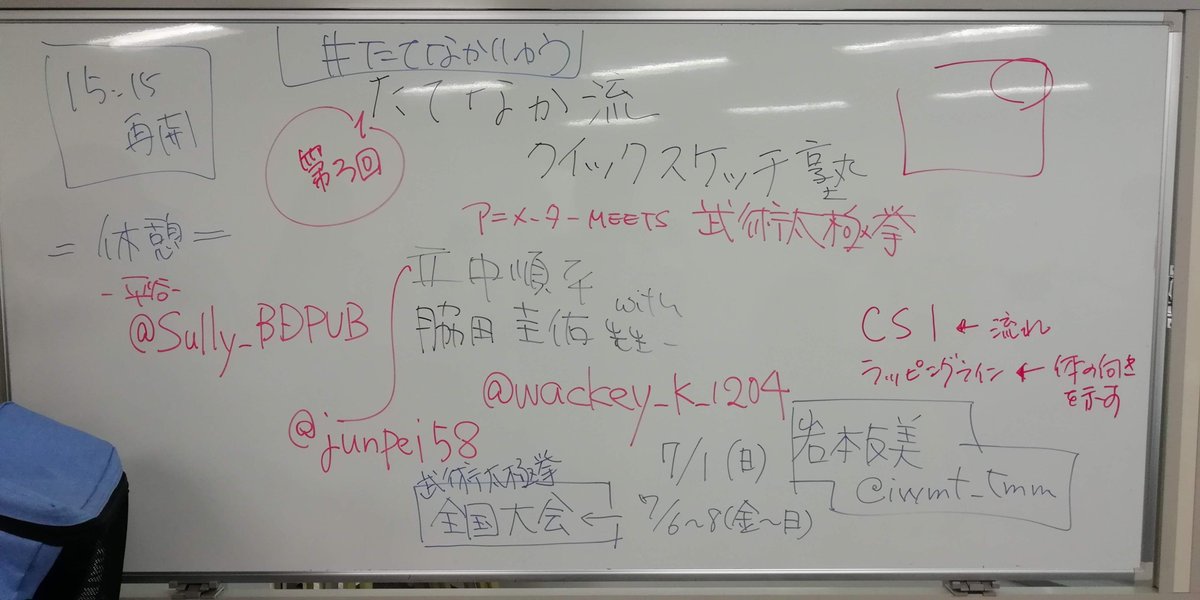 15:15
再開
#たてなかりゅう
たてなか流
クイックスケッチ塾
第3回
アニメーターMEETS 武術太極拳
=休憩=
平谷
@Sully_BDPUB
立中順平
with
脇田圭佑先生
@wackey_k_1204
@junpei58
CSI ← 流れ
ラッピングライン ← 体の向き
を示す
7/1(日)
岩本友美
@iwmt_tmm
武術太極拳
全国大会 ← 7/6~8(金~日)